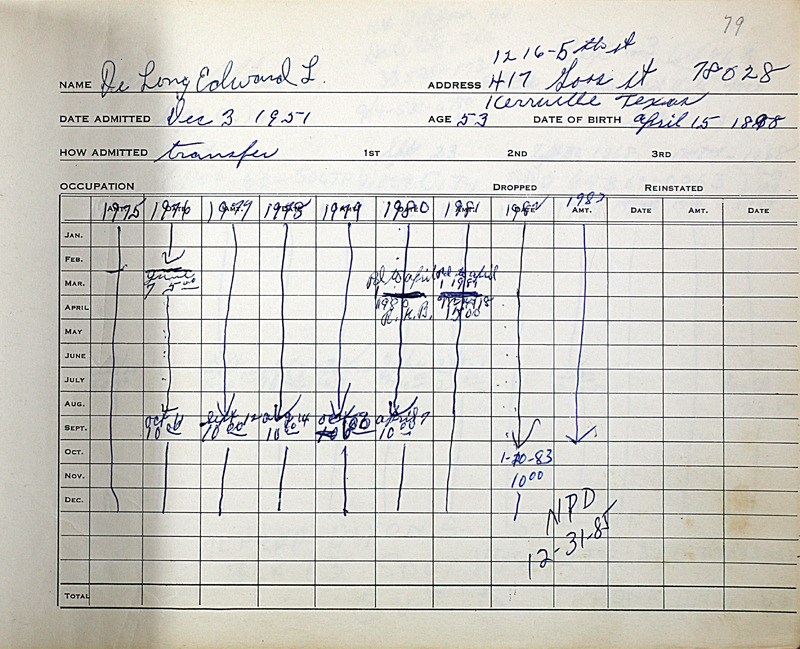 79
1216-5th st
NAME De Long Edward L. ADDRESS 417 Goss st 78028
Kerrville Texas
DATE ADMITTED Dec 3 1951 AGE 53 DATE OF BIRTH April 15 1898
HOW ADMITTED transfer 1ST 2ND 3RD
OCCUPATION DROPPED REINSTATED
1975 1976 1977 1978 1979 1980 1981 1982 1983 AMT. DATE AMT. DATE
JAN.
FEB.
Pd to april Pd to april
MAR. June 1 1 1981
7 5.00 1980
APRIL R. K. B. 15 00
MAY
JUNE
JULY
AUG.
oct Sept oct april 7
SEPT. 10 00 10 00 10 00 10 00 10 00
OCT. 1-20-83
NOV. 10 00
DEC.
NPD
12-31-85
TOTAL